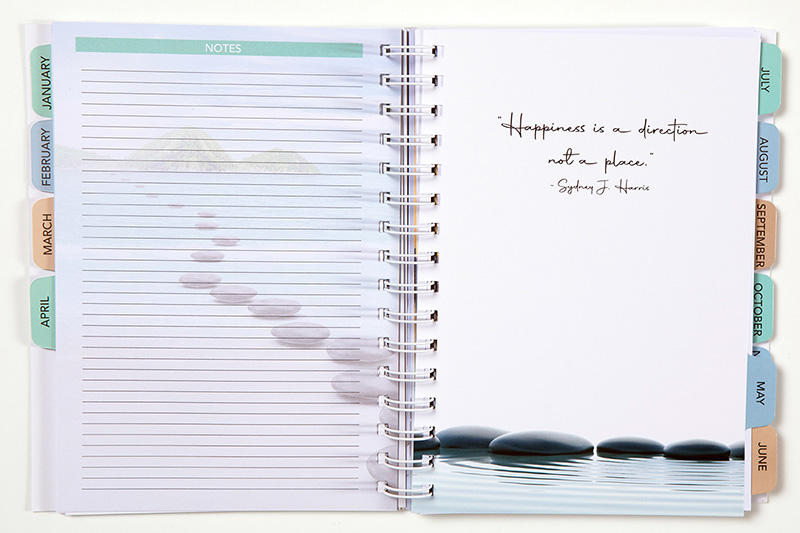 NOTES
JANUARY
FEBRUARY
MARCH
APRIL
"Happiness is a direction
not a place."
- Sydney J. Harris
JULY
AUGUST
SEPTEMBER
OCTOBER
MAY
JUNE